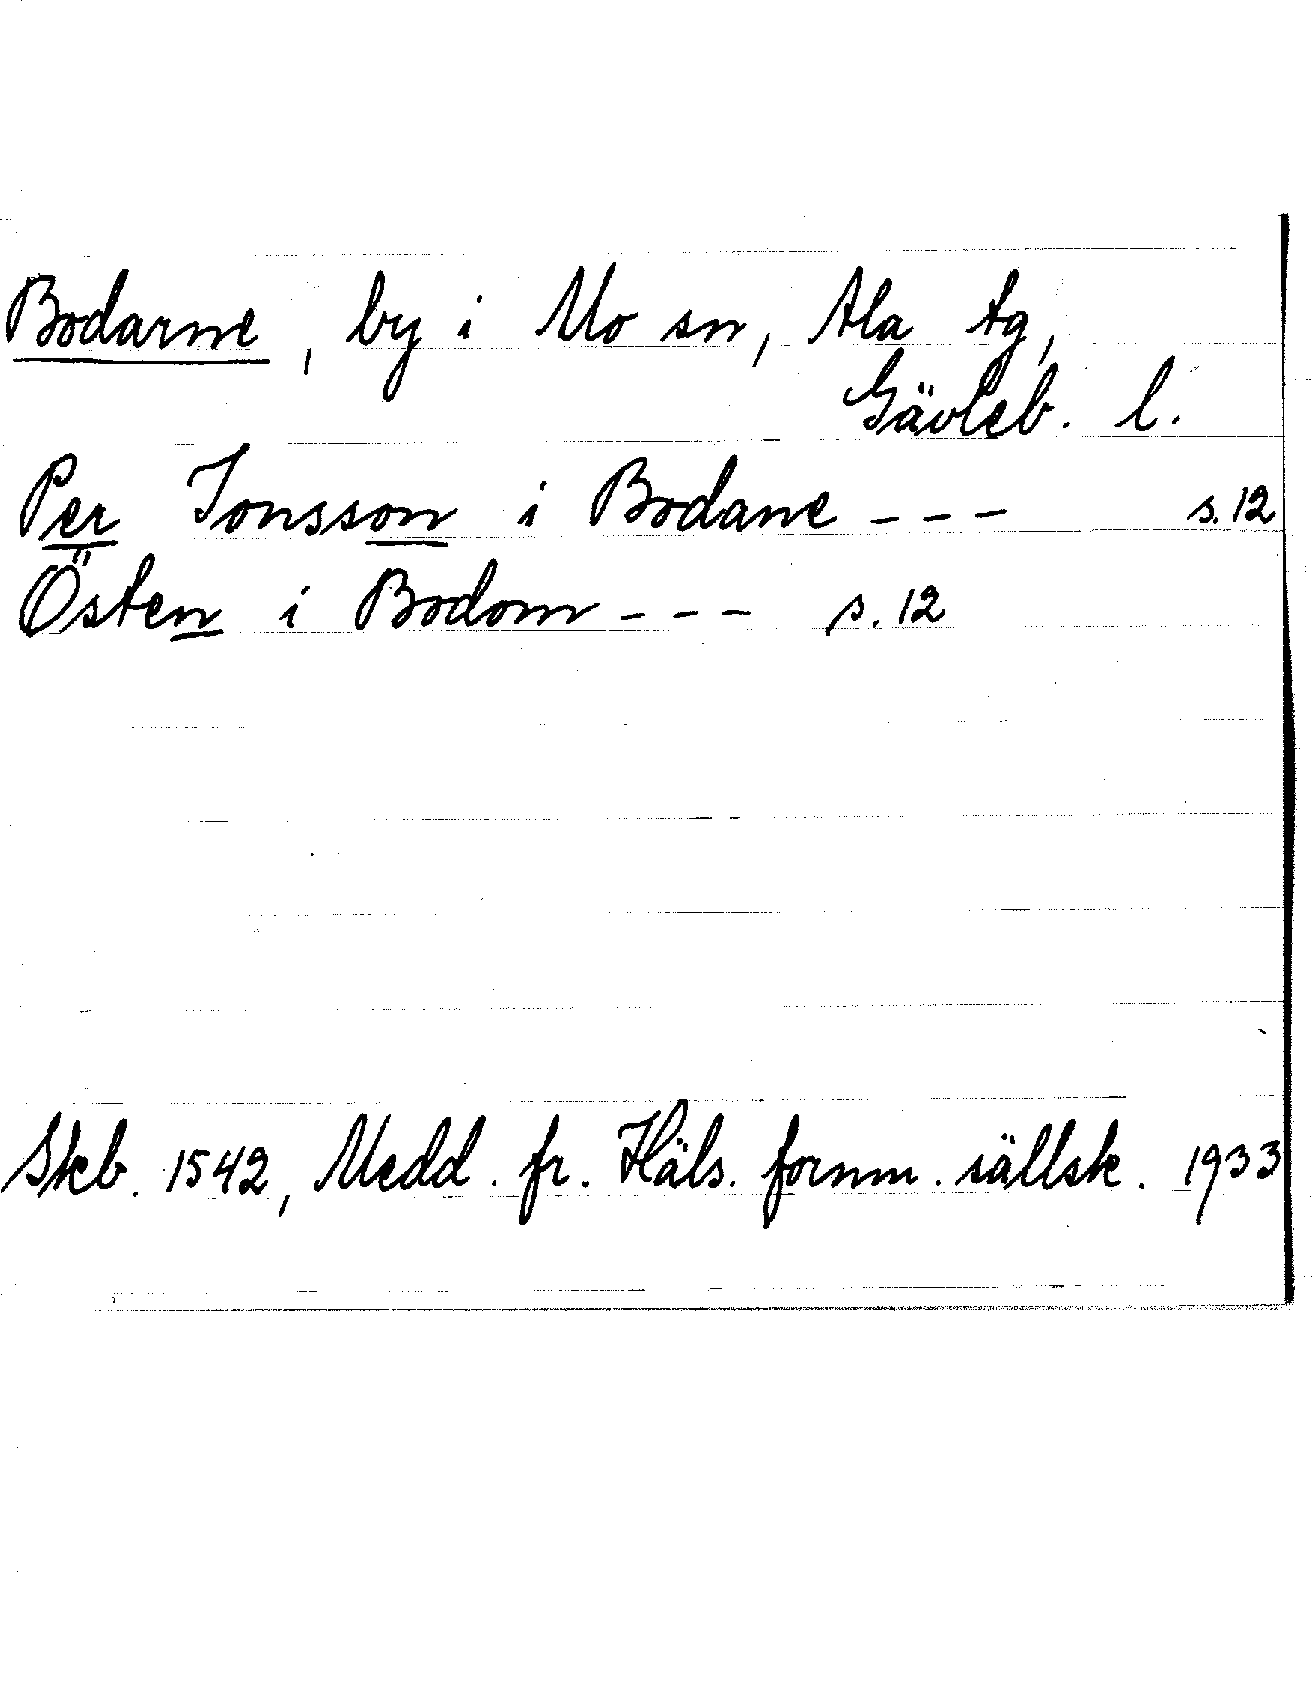 Bodarne, by i Mo sn, Ala tg,
Gävleb. l.
Per Jonsson i Bodane --- s. 12
Östen i Bodom --- s. 12
Skb. 1542, Medd. fr. Häls. fornm. sällsk. 1933